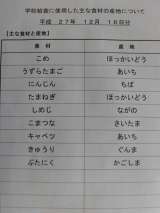 学校給食に使用した主な食材の産地について
平成 27年 12月 16日分
【主な食材と産地】
食材 産地
こめ ほっかいどう
うずらたまご あいち
にんじん ちば
たまねぎ ほっかいどう
しめじ ながの
こまつな さいたま
キャベツ あいち
きゅうり ぐんま
ぶたにく かごしま